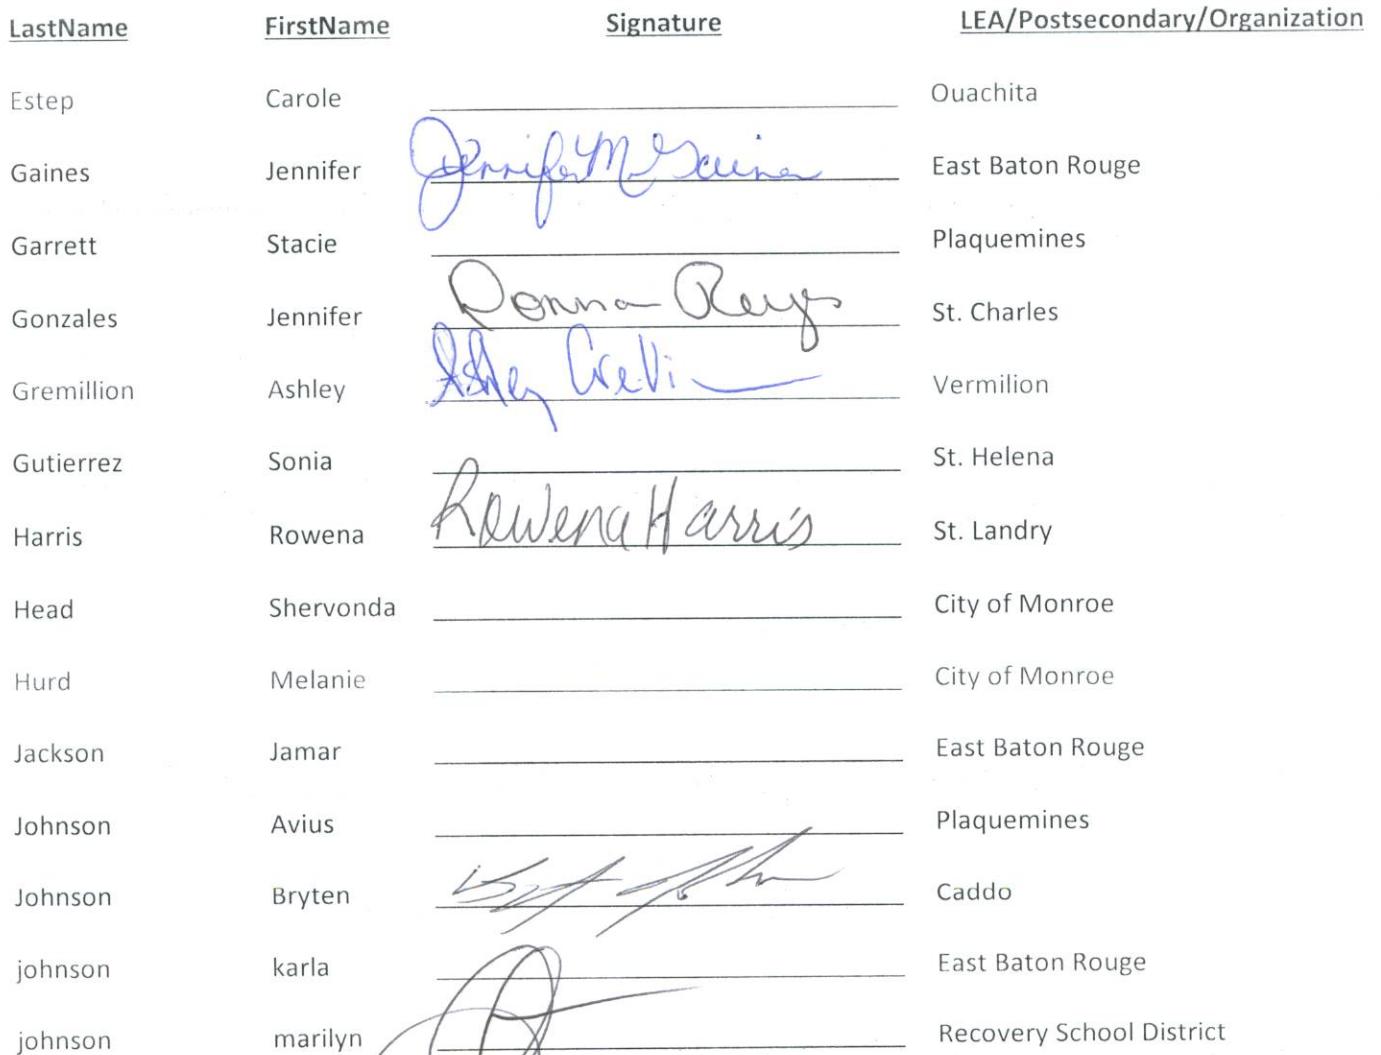 LastName FirstName Signature LEA/Postsecondary/Organization
Estep Carole Ouachita
Gaines Jennifer Jennifer M Gaines East Baton Rouge
Garrett Stacie Plaquemines
Gonzales Jennifer Donna Reyes St. Charles
Gremillion Ashley Ashley Vermilion
Gutierrez Sonia St. Helena
Harris Rowena Rowena Harris St. Landry
Head Shervonda City of Monroe
Hurd Melanie City of Monroe
Jackson Jamar East Baton Rouge
Johnson Avius Plaquemines
Johnson Bryten Caddo
johnson karla East Baton Rouge
johnson marilyn Recovery School District